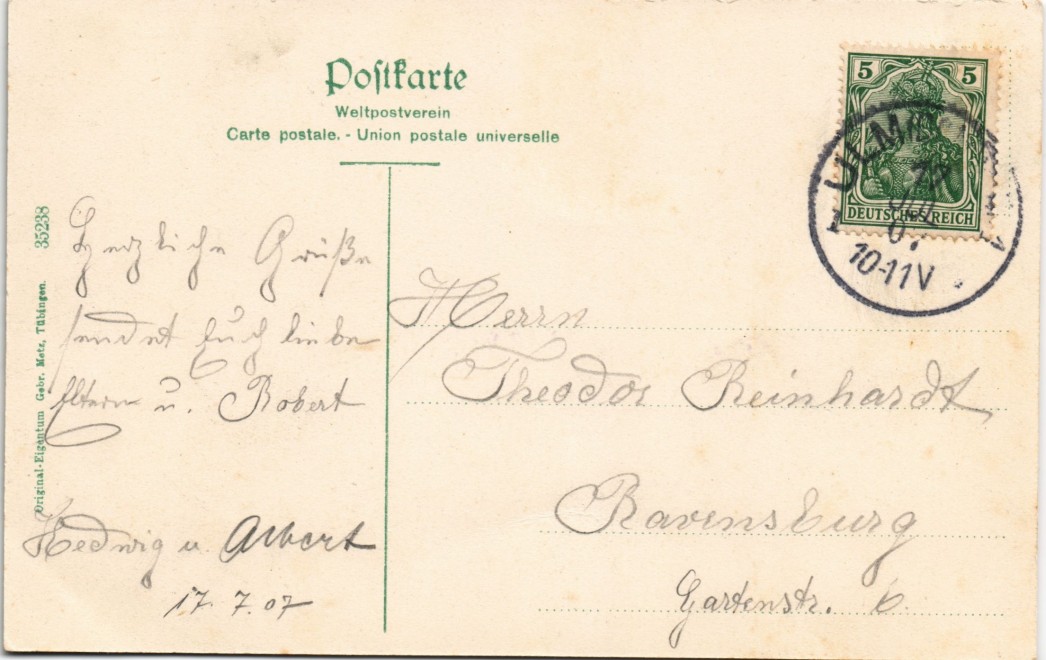 Postkarte
Weltpostverein
Carte postale. - Union postale universelle
5 5
DEUTSCHES REICH
ULM
17
JUL
07
10-11V
35238
Original-Eigentum Gebr. Metz, Tübingen.
Herzliche Grüße
sendet Euch liebe
Eltern u. Robert
Hedwig u. Albert
17. 7. 07
Herrn
Theodor Reinhardt
Ravensburg
Gartenstr. 6.